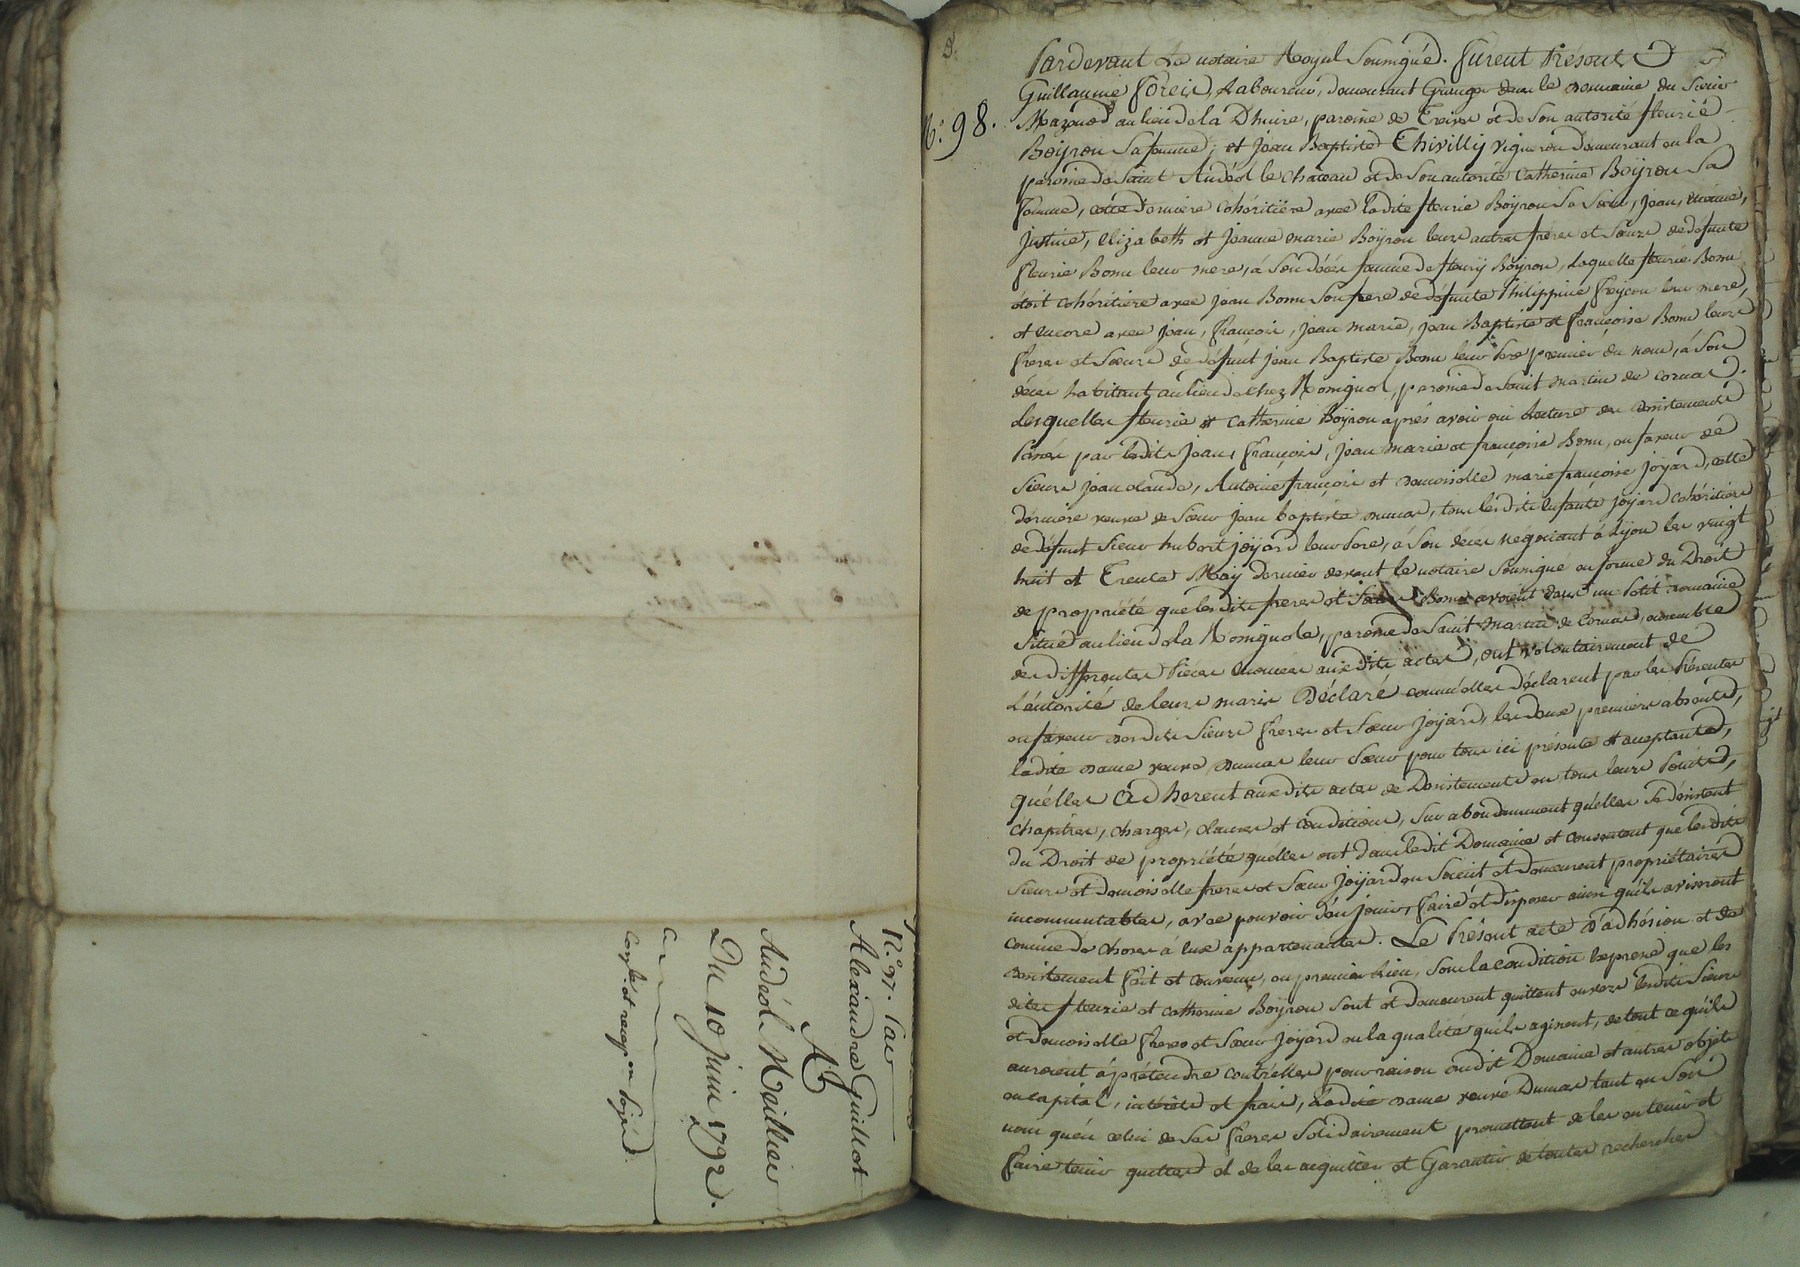 N.° 97. Par
Alexandre Guillot
A
Audéol Meillier
Du 10 juin 1792.
N.° 98.
Pardevant Le notaire Royal Soussigné. furent Présents
Guillaume foreis, Laboureur, demeurant Granger dans le domaine du Sieur
Mazuod au lieu de la Dhuire, paroisse de et de Son autorité fleurie
Boÿron Sa femme; et Jean Baptiste Thivillÿ vigneron Demeurant en la
paroisse de Saint Andéol le chateau et de Son autorité Catherine Boÿron Sa
femme, cette derniere cohéritière avec ladite fleurie Boÿron Sa Sœur, Jean,
Justine, Elizabeth et Jeanne marie Boÿron leurs autres frères et Sœurs de défunte
fleurie Bonu leur mere, à Son décès femme de fleurÿ Boÿron, Laquelle fleurie Bonu
étoit cohéritiere avec Jean Bonu Son frere de défunte Philippine leur mere,
et encore avec Jean, François, Jean marie, Jean Baptiste et françoise Bonu leurs
freres et Sœurs de défunt Jean Baptiste Bonu leur Pere premier du nom, à Son
décès habitant au lieu de chez Romignol, paroisse de Saint martin de cornas.
Lesquelles fleurie et Catherine Boÿron après avoir oui Lecture des desistements
Passés par lesdits Jean, François, Jean Marie et françoise Bonu, en faveur de
Sieurs Jean claude, Antoine françois et demoiselle marie françoise Joÿard, cette
dernière veuve de Sieur Jean baptiste dumas, tous lesdits Enfants Joÿard cohéritiers
de défunt Sieur hubert Joÿard leur Pere, à Son décès négociant à Lÿon les vingt
huit et Trente Maÿ dernier devant le notaire Soussigné en forme du Droit
de propriété que lesdits freres et Sœur Bonu avoient dans un Petit domaine
Situé au lieu de la Romignole, paroisse de Saint Martin de Cornas, ensemble
des differentes Pieces énoncées auxdits actes, ont volontairement de
L'autorité de leurs maris Déclaré comme elles déclarent par les Présentes
en faveur desdits Sieurs Freres et Sœur Joÿard, les deux premiers absents,
ladite dame veuve Dumas leur Sœur pour tous ici présente et acceptante,
qu'elles adherent auxdits actes de Desistements en tous leurs Points,
chapitres, charges, clauses et conditions, Surabondamment qu'elles se désistent
du Droit de propriété qu'elles ont dans ledit Domaine et consentent que lesdits
Sieurs et demoiselle freres et Sœur Joÿard en Soient et demeurent propriétaires
incommutables, avec pouvoir d'en jouir, faire et disposer ainsi qu'ils aviseront
comme de choses à eux appartenantes. Le Présent acte d'adhésion et de
desistement fait et convenu, en premier Lieu, Sous la condition expresse que les
dites fleurie et catherine Boÿron Sont et demeurent quittent envers lesdits Sieurs
et demoiselle freres et Sœur Joÿard en la qualité qu'ils agissent, de tout ce qu'ils
auroient à prétendre contr'elles pour raison dudit Domaine et autres objets
en capital, intérêts et frais, Ladite dame veuve Dumas tant en Son
nom qu'en celui de Ses freres Solidairement promettant de les en tenir et
faire tenir quittes et de les acquitter et Garantir de toutes recherches